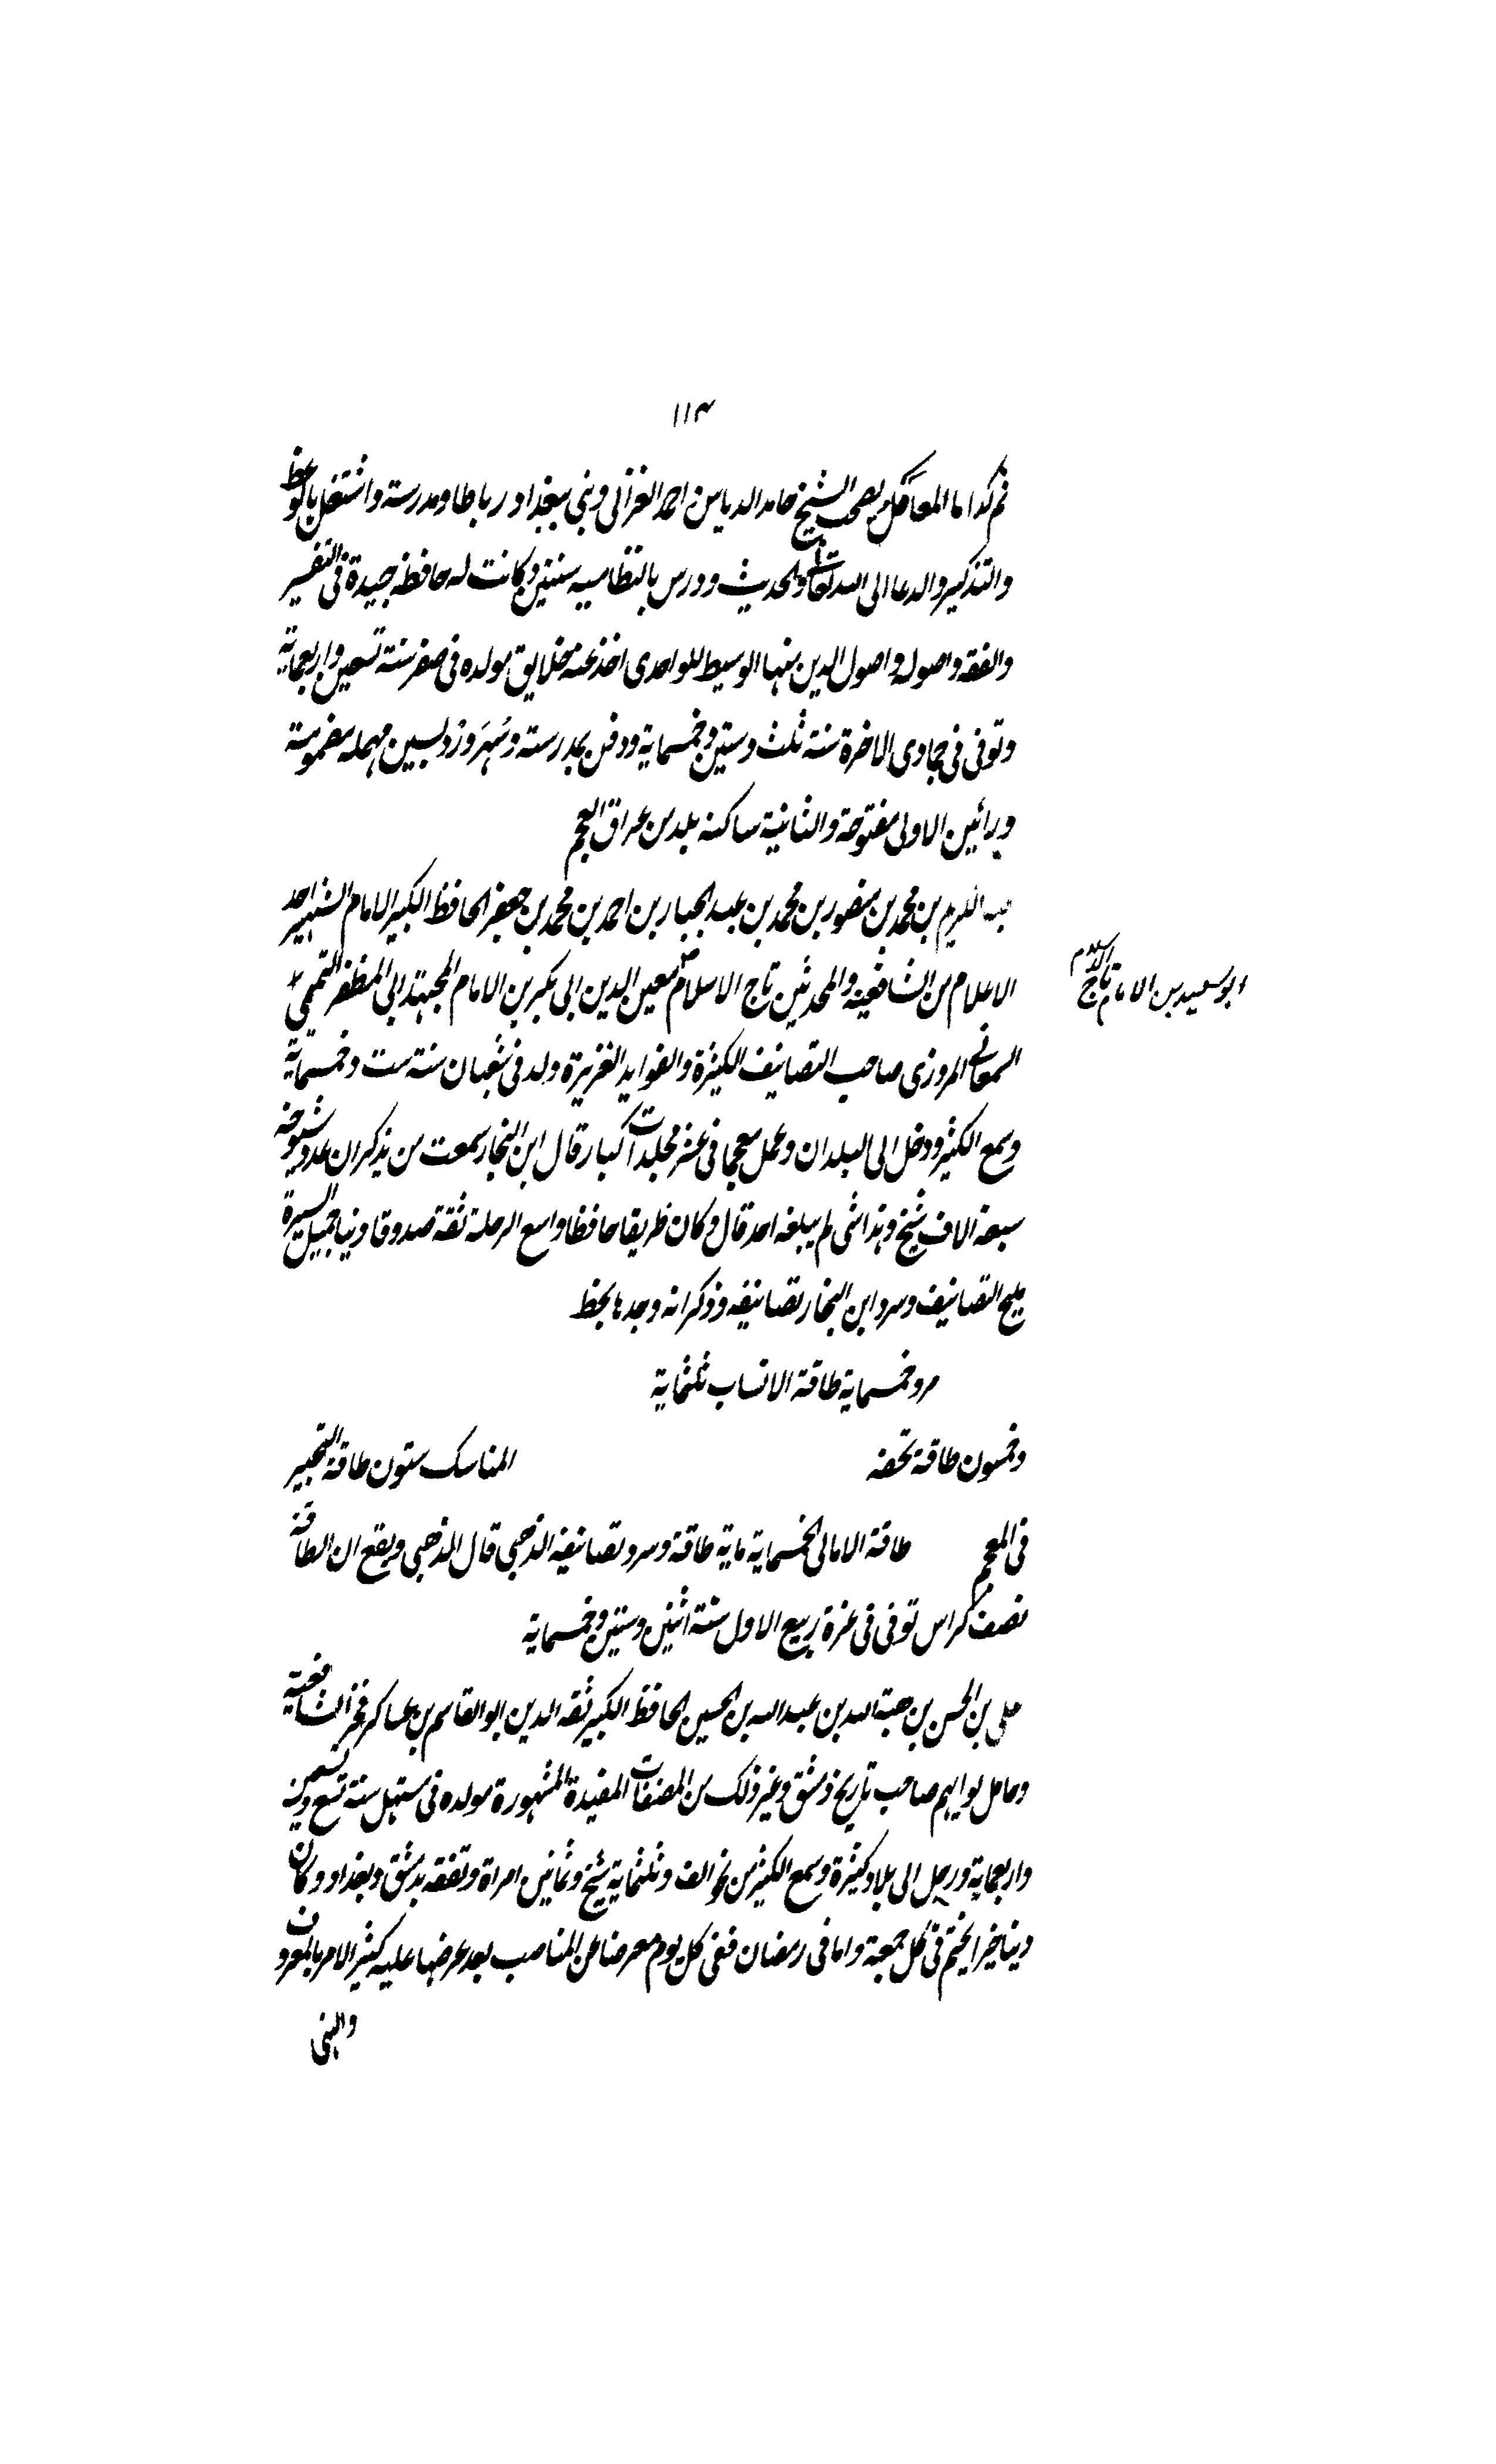 ١١٣
ثم كدا ما المعاكل يصحب الشيخ حامد الدباس احمد الغزالى وبنى ببغداد رباطا ومدرسة واشتغل بالوعظ
والتذكير والدعا الى الله تعالى والحديث ودرس بالنظاميه سنتين وكانت له حافظة جيدة فى التفسير
والفقه واصوله واصول الدين منها الوسيط للواحدى اخذ عنه خلايق مولده فى صفر سنة تسعين واربعماية
وتوفى فى جمادى الاخرة سنة ثلث وستين وخمسماية ودفن بمدرسته وسُهرَورْد بسين مهمله مضمومة
وبرائين الاولى مفتوحة والثانية ساكنه بلد من عراق العجم
عبد الكريم بن محمد بن منصور بن محمد بن عبد الجبار بن احمد بن محمد بن جعفر الحافظ الكبير الامام الشهير احد
الاعلام من الشافعيه والمحدثين تاج الاسلام معين الدين ابى بكر بن الامام المجتهد ابى المظفر التميمى
ابو سعيد بن الامام تاج الاسلام
السمعانى المروزى صاحب التصانيف الكثيرة والفوايد الغزيرة ولد فى شعبان سنة ست وخمسماية
وسمع الكثير ودخل الى البلدان وعمل معجما فى عشر مجلدات كبار قال ابن النجار سمعت من يذكر ان عدد شيوخه
سبعة الاف شيخ وهذا شى لم يبلغه احد قال وكان ظريفا حافظا واسع الرحلة ثقة صدوقا دينا جميل السيرة
مليح التصانيف وسرد ابن النجار تصانيفه وذكر انه وجدها بخط
مرو خمسماية طاقة الانساب ثلثماية
وخمسون طاقة تحفه المناسك ستون طاقة التحبير
فى المعجم طاقة الامالى الخمسماية ماية طاقة وسرد تصانيفه الذهبى قال الذهبى ويقع ان الطاقة
نصف كراس توفى فى غرة ربيع الاول سنة اثنين وستين وخمسماية
على بن الحسن بن هبة الله بن عبد الله بن الحسين الحافظ الكبير ثقة الدين ابو القاسم بن عساكر فخر الشافعية
وحامل لوايهم صاحب تاريخ دمشق وغير ذلك من المصنفات المفيدة المشهورة مولده فى مستهل سنة تسع وتسعين
واربعماية ورحل الى بلاد كثيرة وسمع الكثير من نحو الف وثلثماية شيخ وثمانين امراة وتفقه بدمشق وبغداد وكان
دينا خيرا يختم فى كل جمعة واما فى رمضان ففى كل يوم معرضا عن المناصب بعد عرضها عليه كثير الامر بالمعروف
والنهى